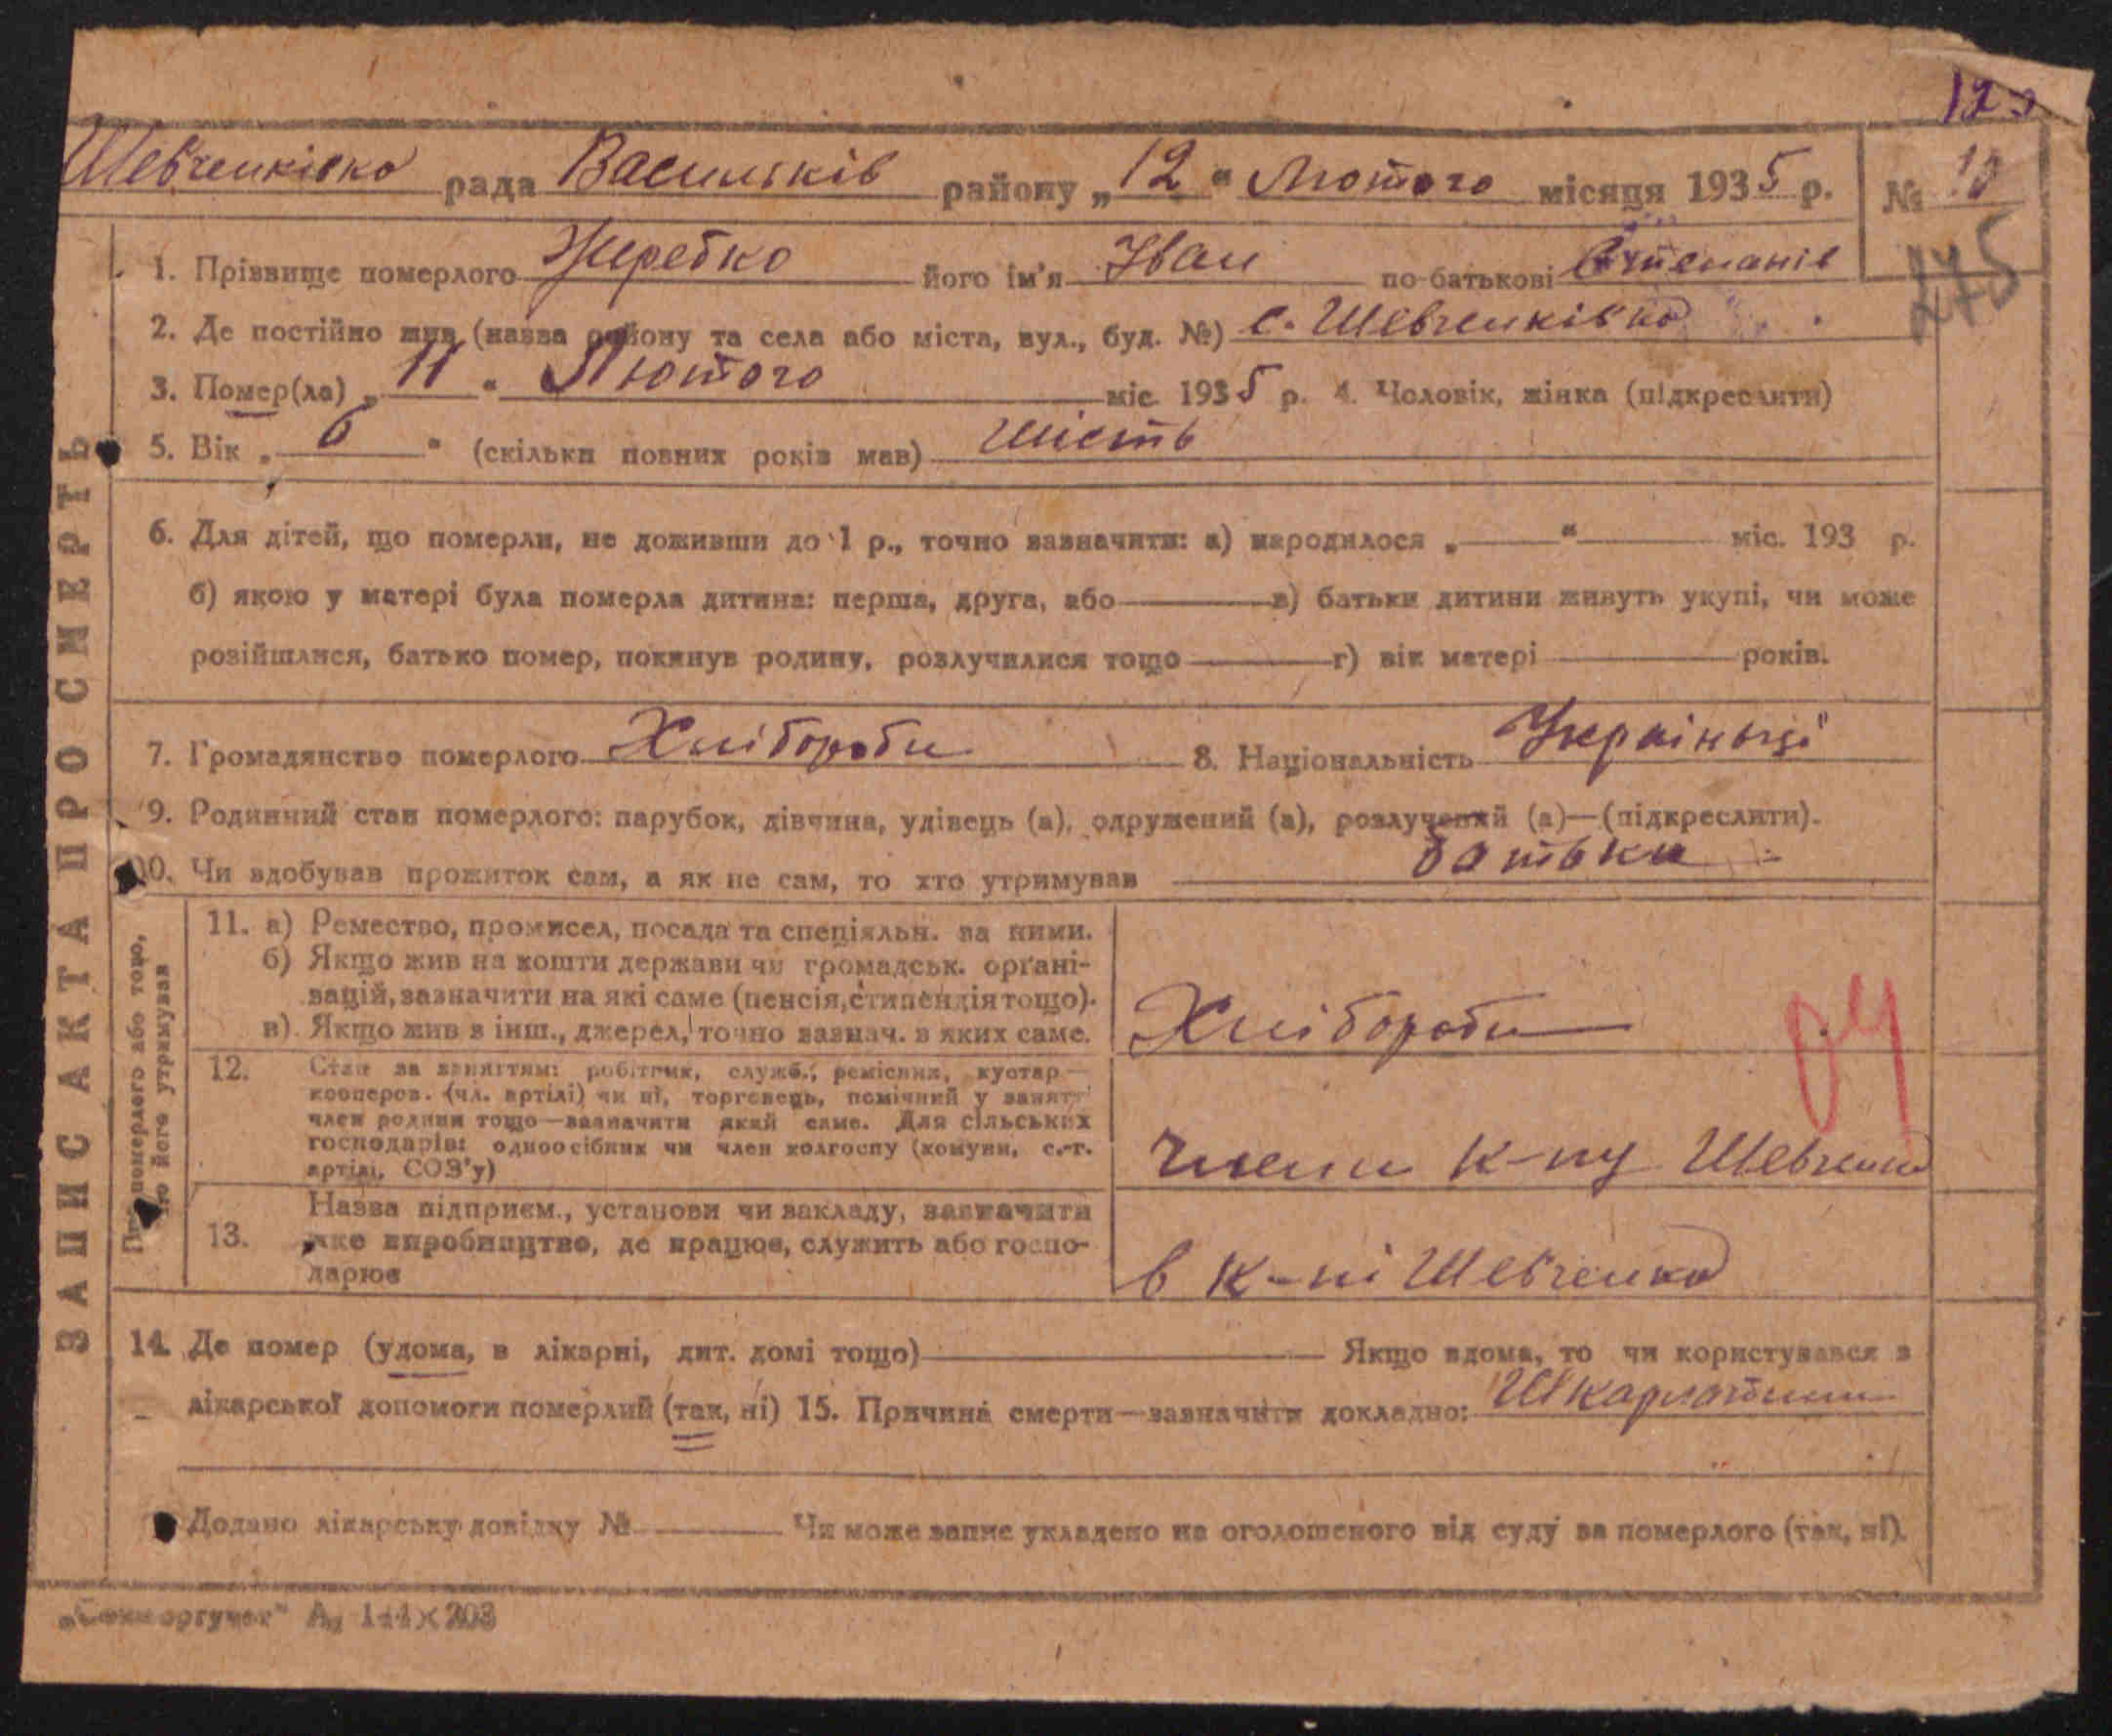 123
Шевченківка рада Васильків району „12“ Лютого місяця 1935 р. № 10
1. Прізвище померлого Жеребко його ім'я Іван по-батькові Степанів
275
2. Де постійно жив (назва району та села або міста, вул., буд. №) с. Шевченківка
3. Помер(ла) „11“ Лютого міс. 1935 р. 4. Чоловік, жінка (підкреслити)
5. Вік „6“ (скільки повних років мав) шість
6. Для дітей, що померли, не доживши до 1 р., точно зазначити: а) народилося „ “ міс. 193 р.
б) якою у матері була померла дитина: перша, друга, або в) батьки дитини живуть укупі, чи може
розійшлися, батько помер, покинув родину, розлучилися тощо г) вік матері років.
7. Громадянство померлого Хлібороби 8. Національність Українці
9. Родинний стан померлого: парубок, дівчина, удівець (а), одружений (а), розлучений (а)—(підкреслити).
10. Чи здобував прожиток сам, а як не сам, то хто утримував батьки
11. а) Ремество, промисел, посада та спеціяльн. за ними.
б) Якщо жив на кошти держави чи громадськ. органі-
зацій, зазначити на які саме (пенсія, стипендія тощо).
в) Якщо жив з інш., джерел, точно зазнач. з яких саме.
Хлібороби
04
12. Стан за заняттям: робітник, служб., ремісник, кустар—
кооперов. (чл. артілі) чи ні, торговець, помічний у занятті
член родини тощо—зазначити який саме. Для сільських
господарів: одноосібник чи член колгоспу (комуни, с.-г.
артілі, СОЗ'у)
члени к-пу Шевченка
13. Назва підприєм., установи чи закладу, зазначити
яке виробництво, де працює, служить або госпо-
дарює
в к-пі Шевченка
Про померлого або того,
що його утримував
14. Де помер (удома, в лікарні, дит. домі тощо) Якщо вдома, то чи користувався з
лікарської допомоги померлий (так, ні) 15. Причина смерти—зазначити докладно: Шкарлатини
Додано лікарську довідку № Чи може запис укладено на оголошеного від суду за померлого (так, ні).
ЗАПИС АКТА ПРО СМЕРТЬ